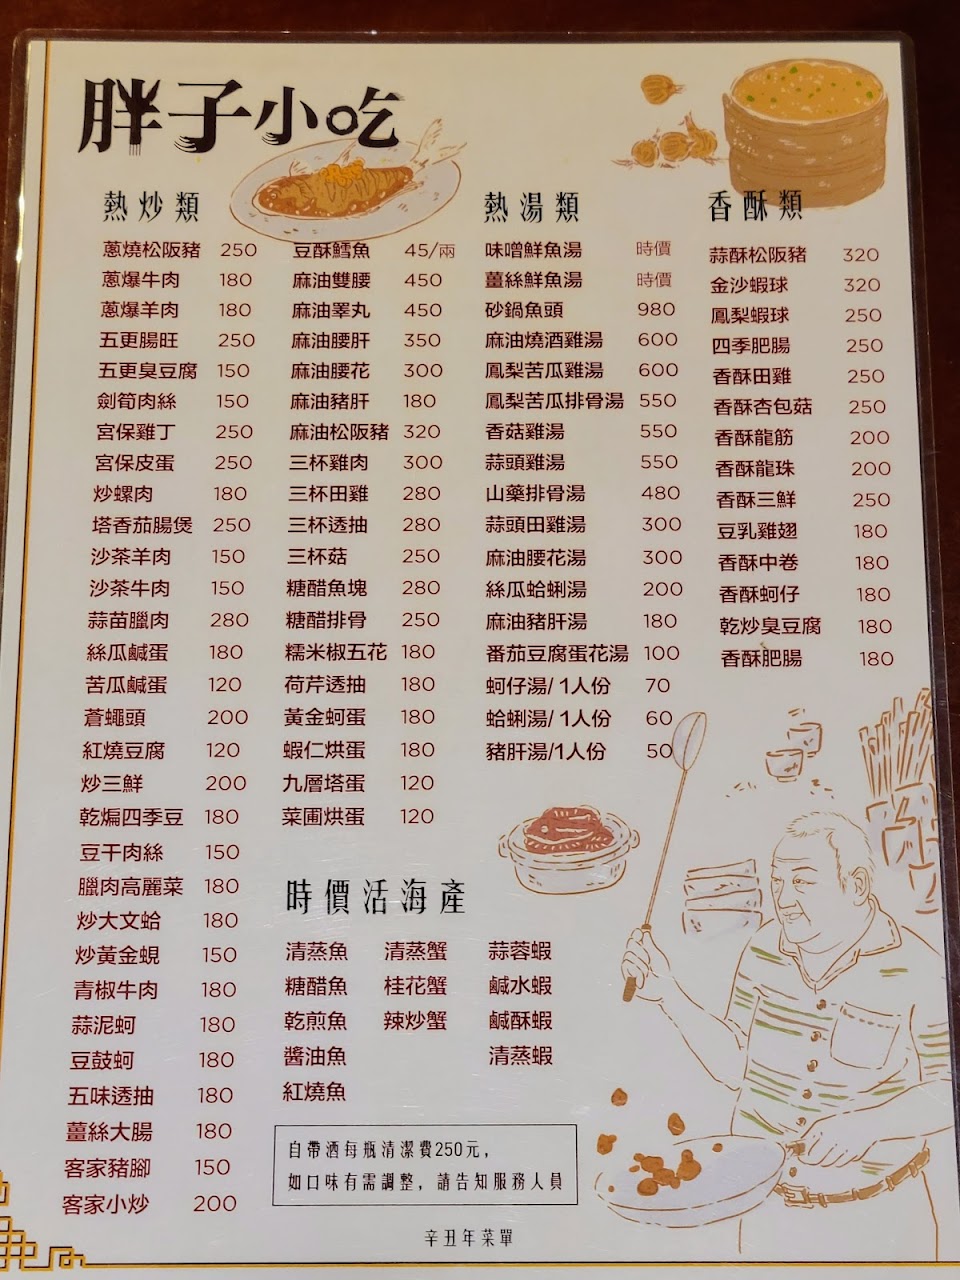 胖子小吃
熱炒類
蔥燒松阪豬 250
蔥爆牛肉 180
蔥爆羊肉 180
五更腸旺 250
五更臭豆腐 150
劍筍肉絲 150
宮保雞丁 250
宮保皮蛋 250
炒螺肉 180
塔香茄腸煲 250
沙茶羊肉 150
沙茶牛肉 150
蒜苗臘肉 280
絲瓜鹹蛋 180
苦瓜鹹蛋 120
蒼蠅頭 200
紅燒豆腐 120
炒三鮮 200
乾煸四季豆 180
豆干肉絲 150
臘肉高麗菜 180
炒大文蛤 180
炒黃金蜆 150
青椒牛肉 180
蒜泥蚵 180
豆鼓蚵 180
五味透抽 180
薑絲大腸 180
客家豬腳 150
客家小炒 200
豆酥鱈魚 45/兩
麻油雙腰 450
麻油睪丸 450
麻油腰肝 350
麻油腰花 300
麻油豬肝 180
麻油松阪豬 320
三杯雞肉 300
三杯田雞 280
三杯透抽 280
三杯菇 250
糖醋魚塊 280
糖醋排骨 250
糯米椒五花 180
荷芹透抽 180
黃金蚵蛋 180
蝦仁烘蛋 180
九層塔蛋 120
菜圃烘蛋 120
熱湯類
味噌鮮魚湯 時價
薑絲鮮魚湯 時價
砂鍋魚頭 980
麻油燒酒雞湯 600
鳳梨苦瓜雞湯 600
鳳梨苦瓜排骨湯 550
香菇雞湯 550
蒜頭雞湯 550
山藥排骨湯 480
蒜頭田雞湯 300
麻油腰花湯 300
絲瓜蛤蜊湯 200
麻油豬肝湯 180
番茄豆腐蛋花湯 100
蚵仔湯/ 1人份 70
蛤蜊湯/ 1人份 60
豬肝湯/1人份 50
香酥類
蒜酥松阪豬 320
金沙蝦球 320
鳳梨蝦球 250
四季肥腸 250
香酥田雞 250
香酥杏包菇 250
香酥龍筋 200
香酥龍珠 200
香酥三鮮 250
豆乳雞翅 180
香酥中卷 180
香酥蚵仔 180
乾炒臭豆腐 180
香酥肥腸 180
時價活海產
清蒸魚 清蒸蟹 蒜蓉蝦
糖醋魚 桂花蟹 鹹水蝦
乾煎魚 辣炒蟹 鹹酥蝦
醬油魚 清蒸蝦
紅燒魚
自帶酒每瓶清潔費250元，
如口味有需調整，請告知服務人員
辛丑年菜單